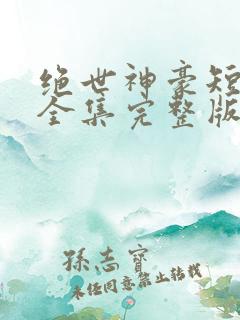 绝世神豪短
全集完整版
孫志寶
未经同意禁止转载